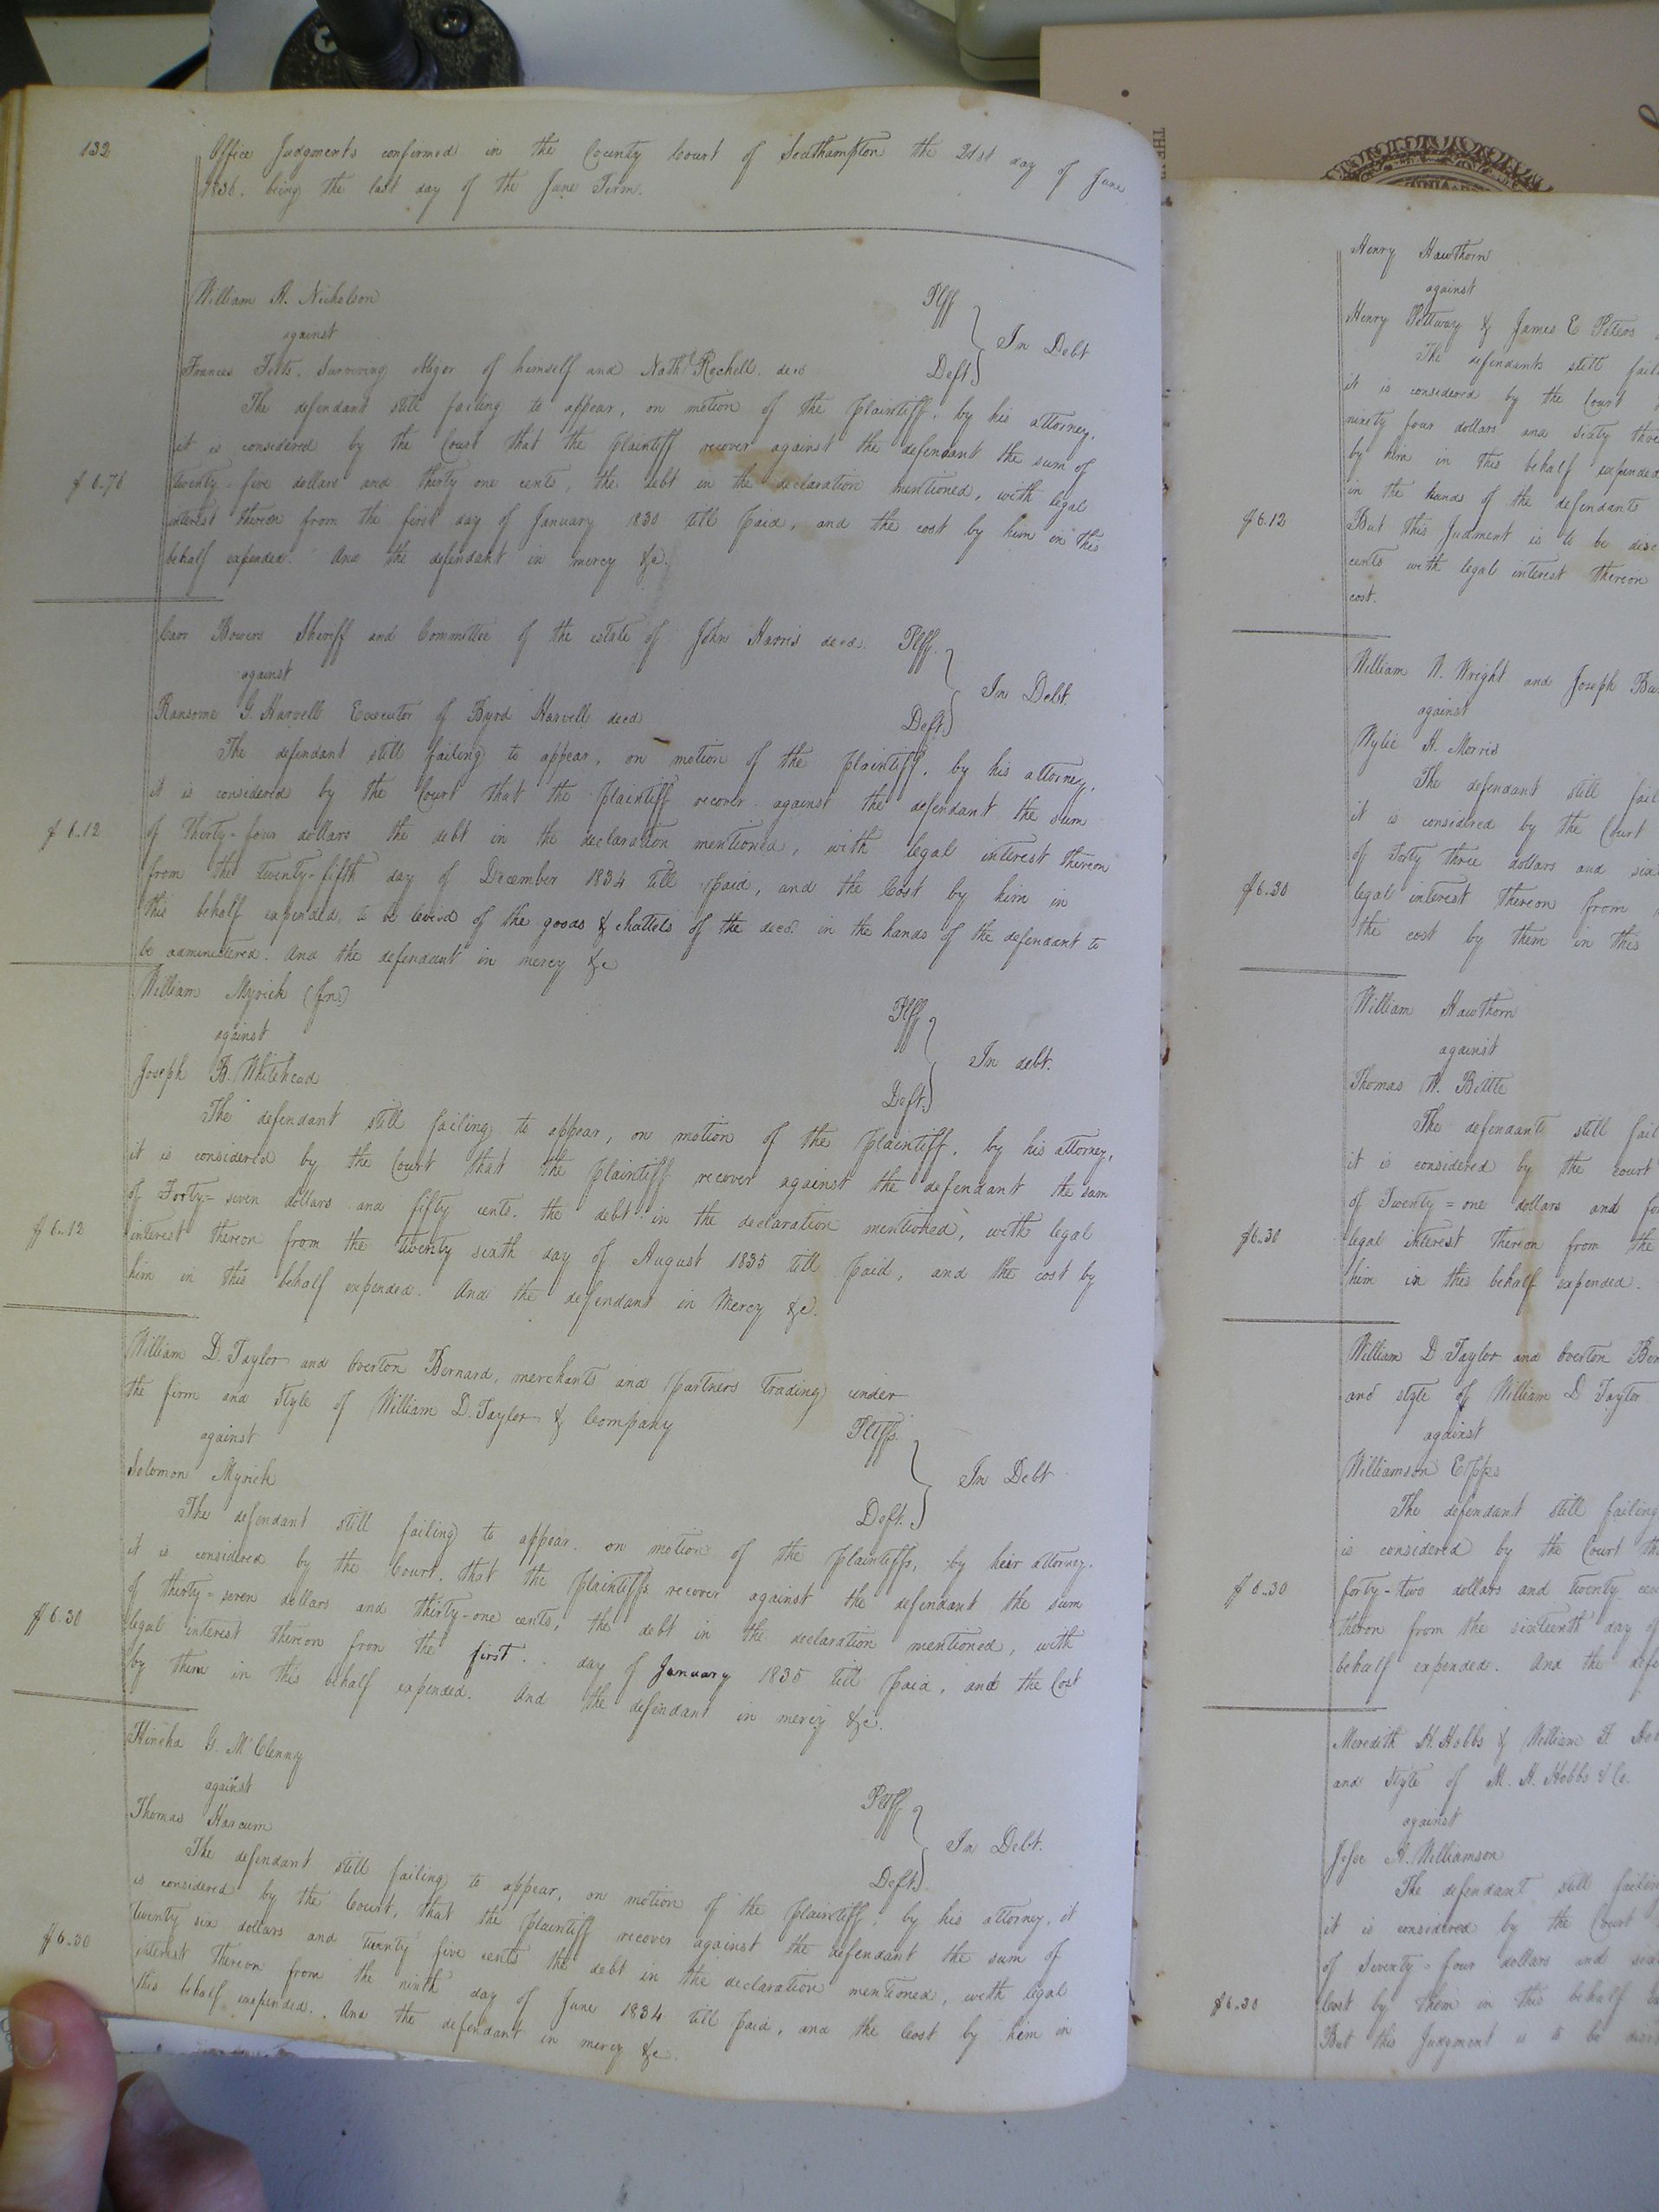 132
Office Judgments confirmed in the County Court of Southampton the 21st day of June
1836. being the last day of the June Term.
William A. Nicholson Plff
against In Debt
Frances Felts, Surviving obligor of himself and Nath.l Rochell decd Deft
The defendant still failing to appear, on motion of the plaintiff, by his attorney,
it is considered by the Court that the plaintiff recover against the defendant the sum of
twenty-five dollars and thirty one cents, the debt in the declaration mentioned, with legal
interest thereon from the first day of January 1830 till paid, and the cost by him in this
behalf expended. And the defendant in mercy &c.
Carr Bowers Sheriff and Committee of the estate of John Harris decd. Plff.
against In Debt.
Ransome G. Harvell Executor of Byrd Harvell decd Deft
The defendant still failing to appear, on motion of the plaintiff, by his attorney,
it is considered by the Court that the plaintiff recover against the defendant the sum
$6.12 of thirty-four dollars the debt in the declaration mentioned, with legal interest thereon
from the twenty-fifth day of December 1834 till paid, and the Cost by him in
this behalf expended, to be levied of the goods & chattels of the decd. in the hands of the defendant to
be administered. And the defendant in mercy &c
William Myrick (Jn.) Plff
against In debt.
Joseph B. Whitehead Deft.
The defendant still failing to appear, on motion of the plaintiff, by his attorney,
it is considered by the Court that the plaintiff recover against the defendant the sum
of Forty=seven dollars and fifty cents. the debt in the declaration mentioned, with legal
$6.12 interest thereon from the twenty sixth day of August 1835 till paid, and the cost by
him in this behalf expended. And the defendant in Mercy &c.
William D. Taylor and Overton Bernard, merchants and partners trading under
the firm and Style of William D. Taylor & Company Plffs.
against In Debt
Solomon Myrick Deft.
The defendant still failing to appear. on motion of the plaintiffs, by heir attorney.
it is considered by the Court. that the plaintiffs recover against the defendant the sum
of thirty=seven dollars and thirty-one cents, the debt in the declaration mentioned, with
$6.30 legal interest thereon from the first day of January 1835 till paid, and the Cost
by them in this behalf expended. And the defendant in mercy &c.
Hincha G. McClenny Plff
against In Debt.
Thomas Harcum Deft
The defendant still failing to appear, on motion of the plaintiff, by his attorney, it
is considered by the Court, that the plaintiff recover against the defendant the sum of
twenty six dollars and twenty five cents the debt in the declaration mentioned, with legal
$6.30 interest thereon from the ninth day of June 1834 till paid, and the Cost by him in
this behalf expended. And the defendant in mercy &c.
Henry Hawthorn
against
Henry Pettway & James E Peters
The defendants still
it is considered by the Court
ninety four dollars and sixty
by him in this behalf expended
in the hands of the defendants
$6.12 But this Judgment is to be
cents with legal interest thereon
cost.
William N. Wright and Joseph
against
Wylie H. Morris
The defendant still
it is considered by the Court
of Forty three dollars and
$6.30 legal interest thereon from
the cost by them in this
William Hawthorn
against
Thomas W. Bittle
The defendants still
it is considered by the court
of Twenty=one dollars and
$6.30 legal interest thereon from the
him in this behalf expended.
William D Taylor and Overton
and style of William D Taylor
against
Williamson Epps
The defendant still failing
is considered by the Court
$6.30 forty-two dollars and twenty
theron from the sixteenth day of
behalf expended. And the
Meredith H. Hobbs & William F.
and Style of M. H. Hobbs & Co.
against
Jesse A. Williamson
The defendant still
it is considered by the Court
of Seventy=four dollars and
$6.30 Cost by them in this behalf
But this Judgment is to be